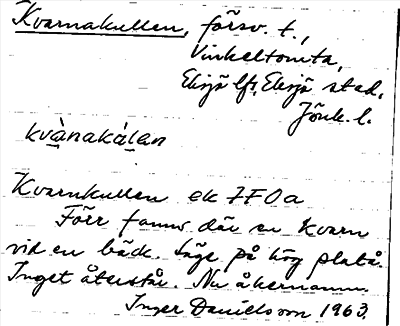 Kvarnakullen, försv. t.,
Vinkeltomta,
Eksjö lfs, Eksjö stad,
Jönk. l.
kvànakálan
Kvarnkullen ek 7F0a
Förr fanns där en kvarn
vid en bäck. Läge på hög platå.
Inget återstår. Nu åkernamn.
Inger Danielsson 1963.